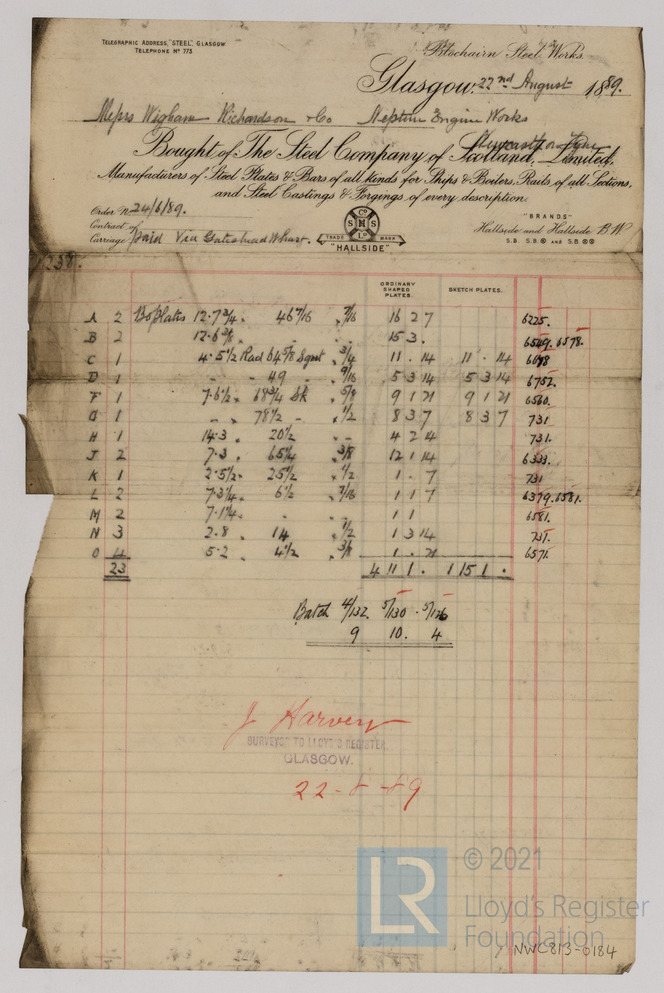 TELEGRAPHIC ADDRESS, "STEEL", GLASGOW.
TELEPHONE Nº 773.
Blochairn Steel Works.
Glasgow, 22nd August 1889.
Messrs Wigham Richardson & Co Neptune Engine Works
Newcastle on Tyne
Bought of The Steel Company of Scotland, Limited,
Manufacturers of Steel Plates & Bars of all kinds for Ships & Boilers, Rails of all Sections,
and Steel Castings & Forgings of every description.
Order No. 24/6/89.
Contract of
Carriage Paid Via Gateshead Wharf.
Cº
S H S
Lº
TRADE MARK
"HALLSIDE"
"BRANDS"
Hallside and Hallside B W
S.B. S.B. AND S.B.
238.
ORDINARY SHAPES PLATES. SKETCH PLATES.
A 2 Bo Plates 12.7¾ . 46 7/16 . 7/16 16 2 7 6225.
B 2 12.6⅜ . - - 15 3 . 6549. 6578.
C 1 4.5½ Rad 64⅝ Sgnt . ¾ 11 . 14 11 . 14 6678
D 1 - - 49 - . 9/16 5 3 14 5 3 14 6752.
F 1 7.6½ . 68¾ Sk . ⅝ 9 1 21 9 1 21 6560.
G 1 - - 78½ - . ½ 8 3 7 8 3 7 731
H 1 14.3 . 20½ . - 4 2 4 731.
J 2 7.3 . 65¼ . ⅜ 12 1 14 6333.
K 1 2.5½ . 25½ . ½ 1 . 7 731
L 2 7.3¼ . 6½ . 7/16 1 1 7 6379. 6581.
M 2 7.1¼ . - - 1 1 6581.
N 3 2.8 . 14 . ½ 1 3 14 731.
O 4 5.2 . 4½ . ⅜ 1 . 21 6571.
23 4 11 1 . 1 15 1 .
Batch 4/132. 5/130 . 5/126
9 10. 4
J Harvey
SURVEYOR TO LLOYD'S REGISTER,
GLASGOW.
22-8-89
LR
© 2021
Lloyd's Register
Foundation
NWC813-0184